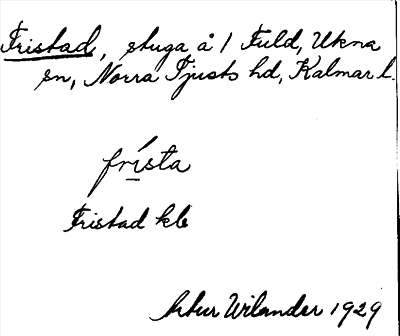 Fristad, stuga å 1 Fuld, Ukna
sn, Norra Tjusts hd, Kalmar l.
frísta
Fristad kb
Artur Wilander 1929